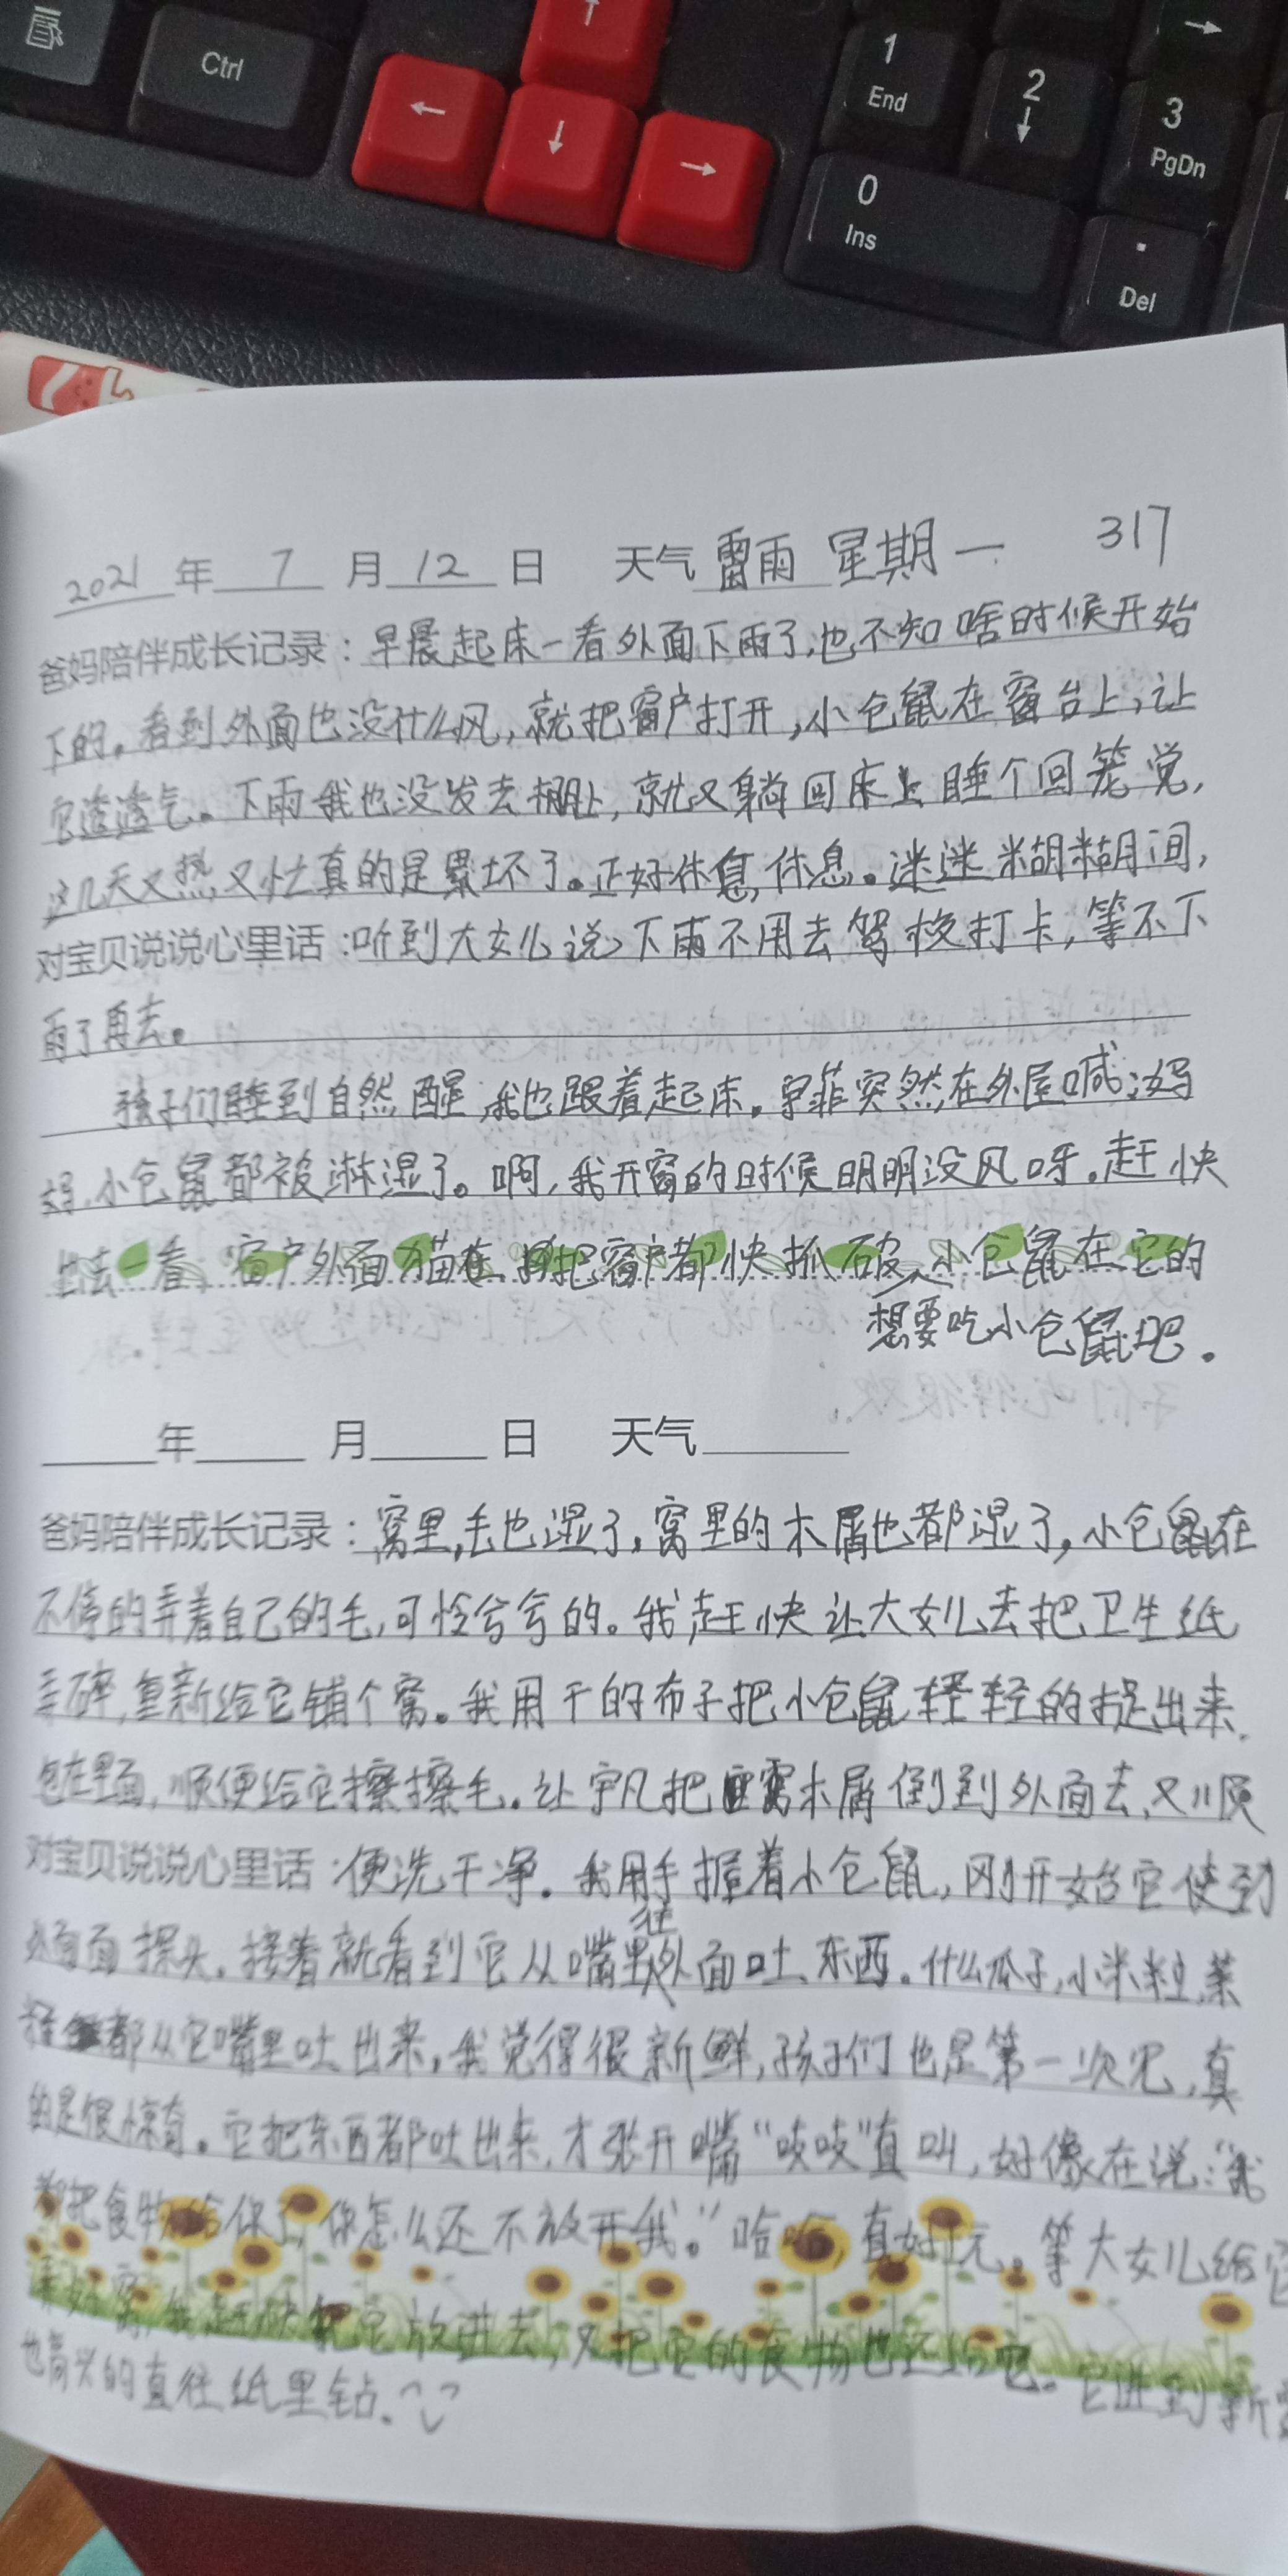 Ctrl
↑
←
↓
→
1
End
2
↓
3
PgDn
→
0
Ins
.
Del
2021年 7 月 12 日 天气 雷雨 星期一 317
爸妈陪伴成长记录：早晨起床一看外面下雨了,也不知啥时候开始
下的。看到外面也没什么风,就把窗户打开,小仓鼠在窗台上,让
它透透气。下雨我也没发去棚上,就又躺回床上睡个回笼觉,
这几天又热又忙真的是累坏了。正好休息休息。迷迷糊糊间,
对宝贝说说心里话：听到大女儿说下雨不用去驾校打卡,等不下
雨了再去。
孩子们睡到自然醒,我也跟着起床。宇菲突然在外屋喊:妈
妈,小仓鼠都被淋湿了。啊,我开窗的时候明明没风呀.赶快
去一看,窗户外面猫在把窗户都快抓破,小仓鼠在它的
想要吃小仓鼠吧.
年 月 日 天气
爸妈陪伴成长记录：窝里,毛也湿了,窝里的木屑也都湿了,小仓鼠在
不停的弄着自己的毛,可怜兮兮的。我赶快让大女儿去把卫生纸
弄碎,重新给它铺个窝。我用干的布子把小仓鼠轻轻的捉出来,
包在里面,顺便给它擦擦毛.让宇凡把窝木屑倒到外面去,又顺
对宝贝说说心里话：便洗干净.我用手握着小仓鼠,刚开始它使劲
外面探头.接着就看到它从嘴里往外面吐东西.什么瓜子,小米粒,菜
都从它嘴里吐出来,我觉得很新鲜,孩子们也是第一次见,真
的是很惊奇。它把东西都吐出来,才张开嘴"吱吱"直叫,好像在说:"我
都把食物给你了,你怎么还不放开我."哈哈,真好玩.等大女儿给它
弄好窝,我赶快把它放进去,又把它的食物也还给它.它进到新窝
也高兴的直往纸里钻.